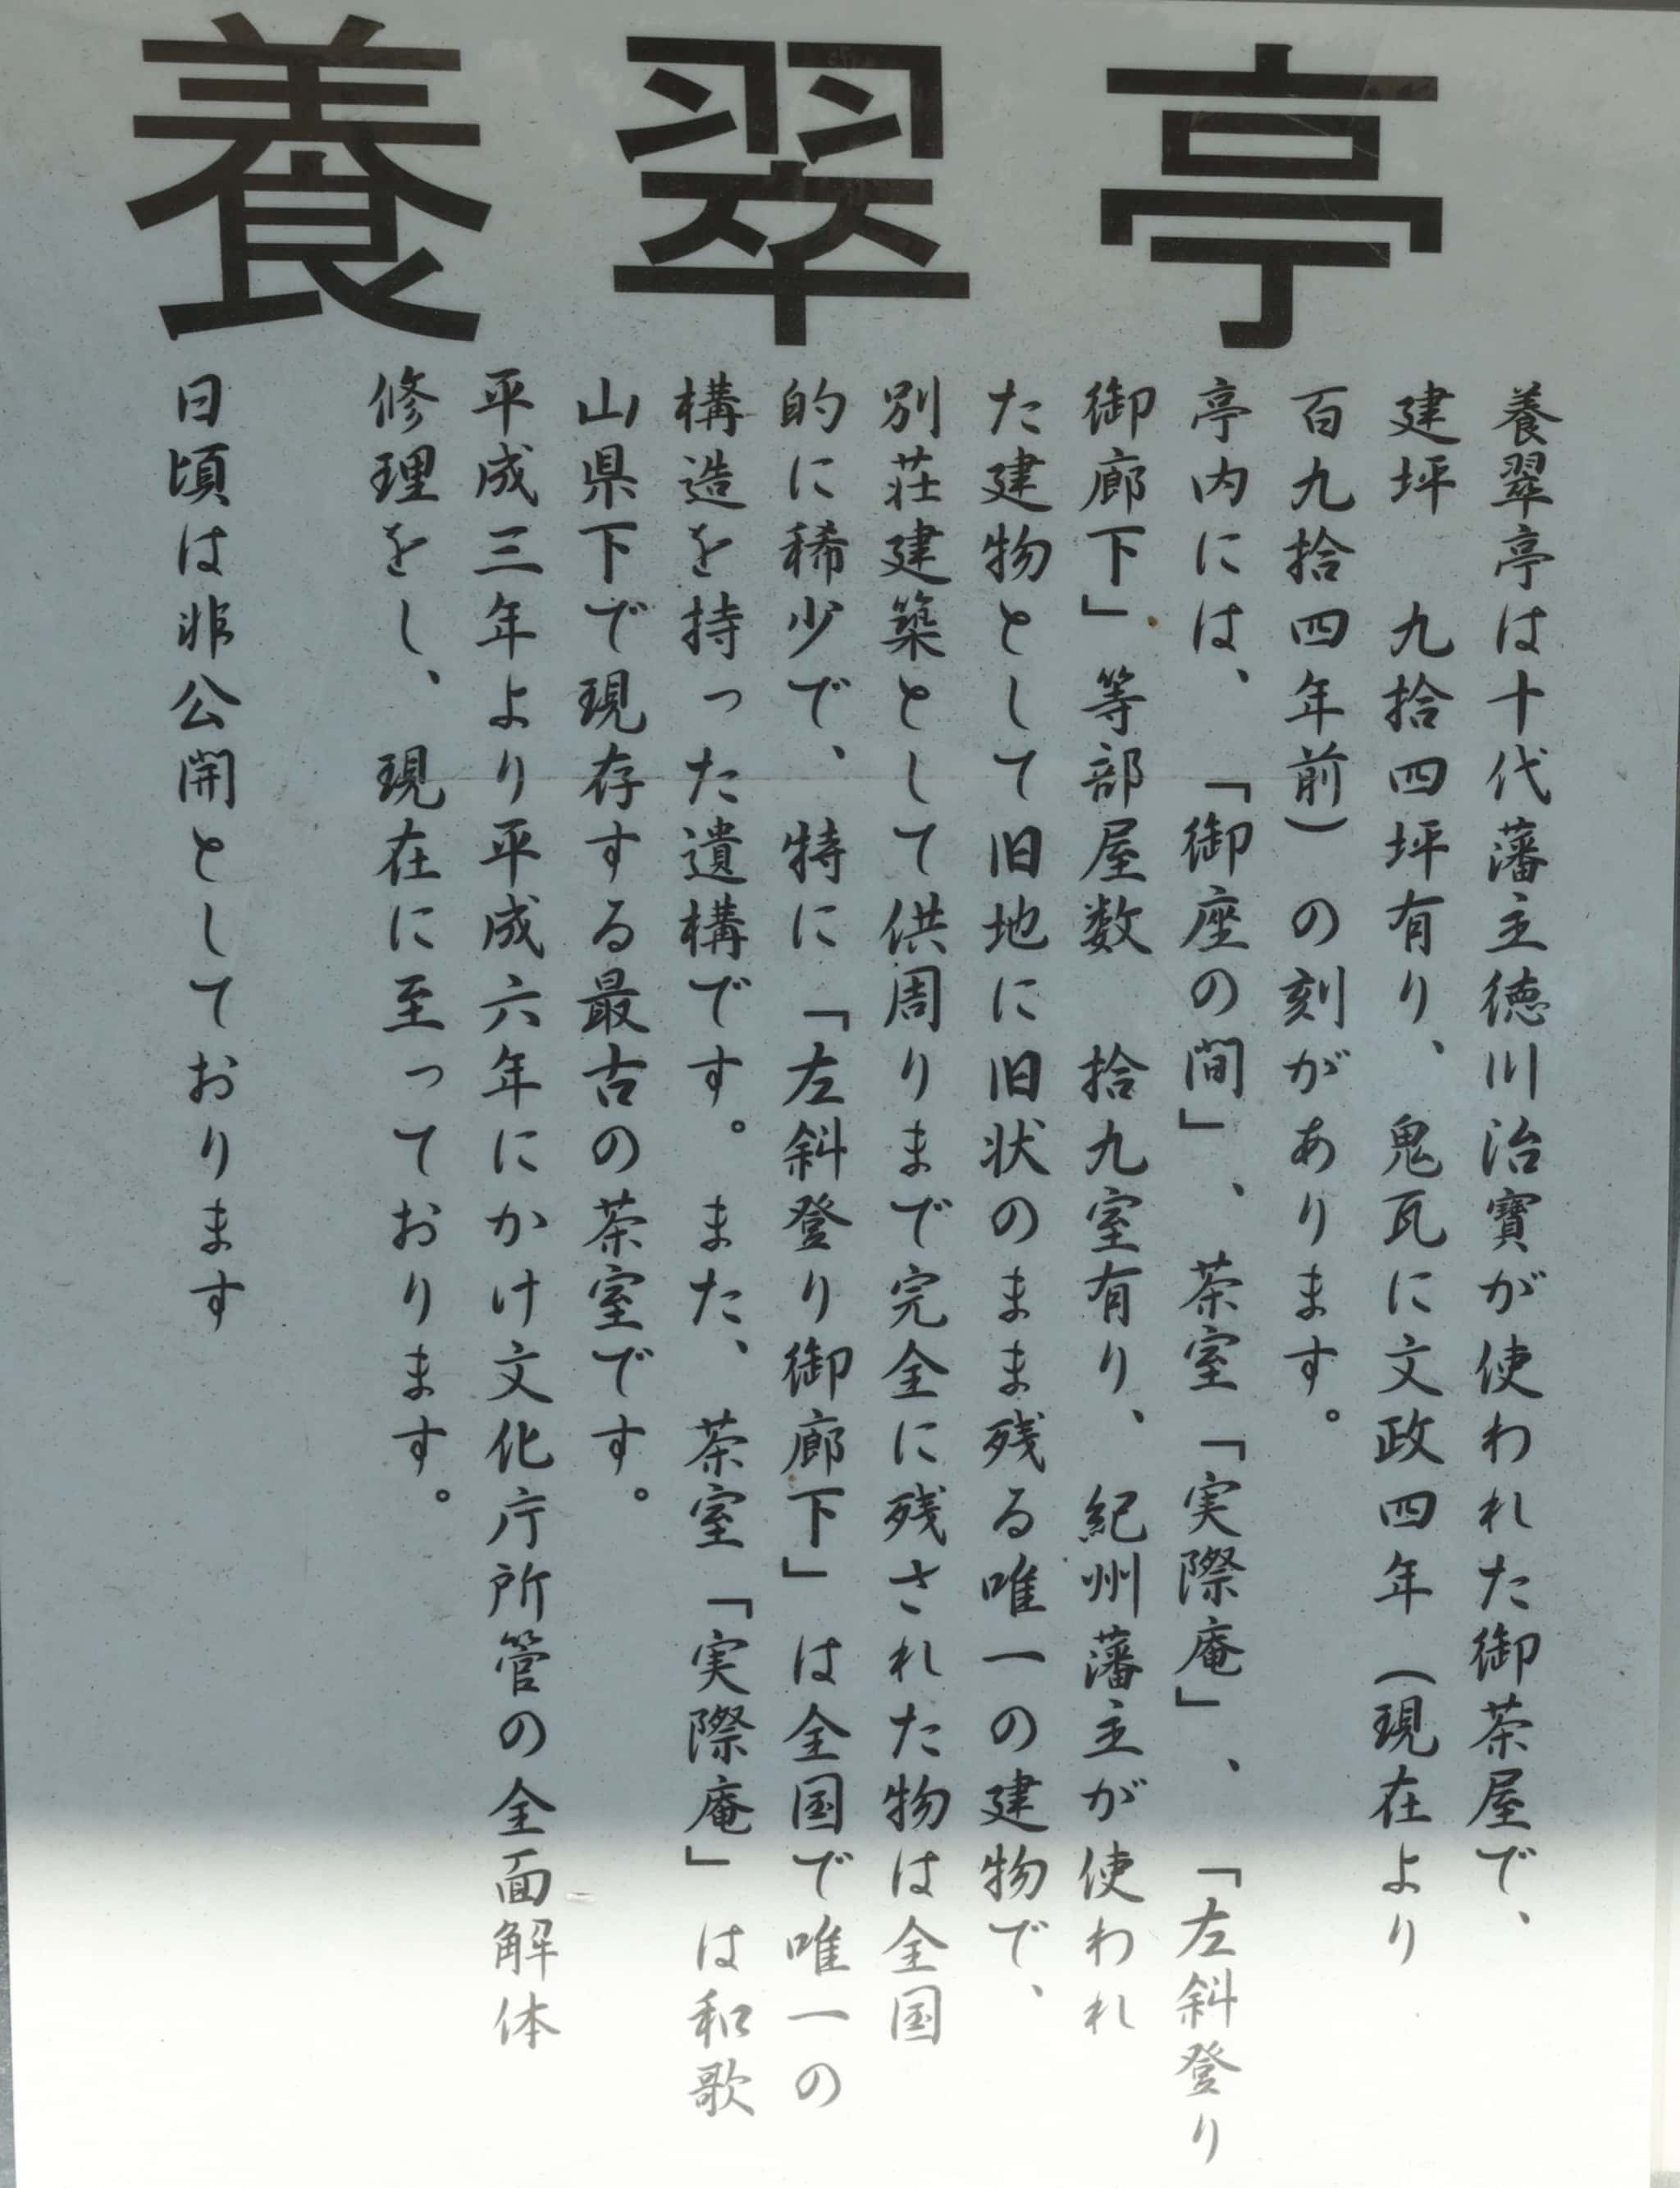 養翠亭
養翠亭は十代藩主徳川治寶が使われた御茶屋で、
建坪　九拾四坪有り、鬼瓦に文政四年（現在より
百九拾四年前）の刻があります。
亭内には、「御座の間」、茶室「実際庵」、「左斜登り
御廊下」等部屋数　拾九室有り、紀州藩主が使われ
た建物として旧地に旧状のまま残る唯一の建物で、
別荘建築として供周りまで完全に残された物は全国
的に稀少で、特に「左斜登り御廊下」は全国で唯一の
構造を持った遺構です。また、茶室「実際庵」は和歌
山県下で現存する最古の茶室です。
平成三年より平成六年にかけ文化庁所管の全面解体
修理をし、現在に至っております。
日頃は非公開としております